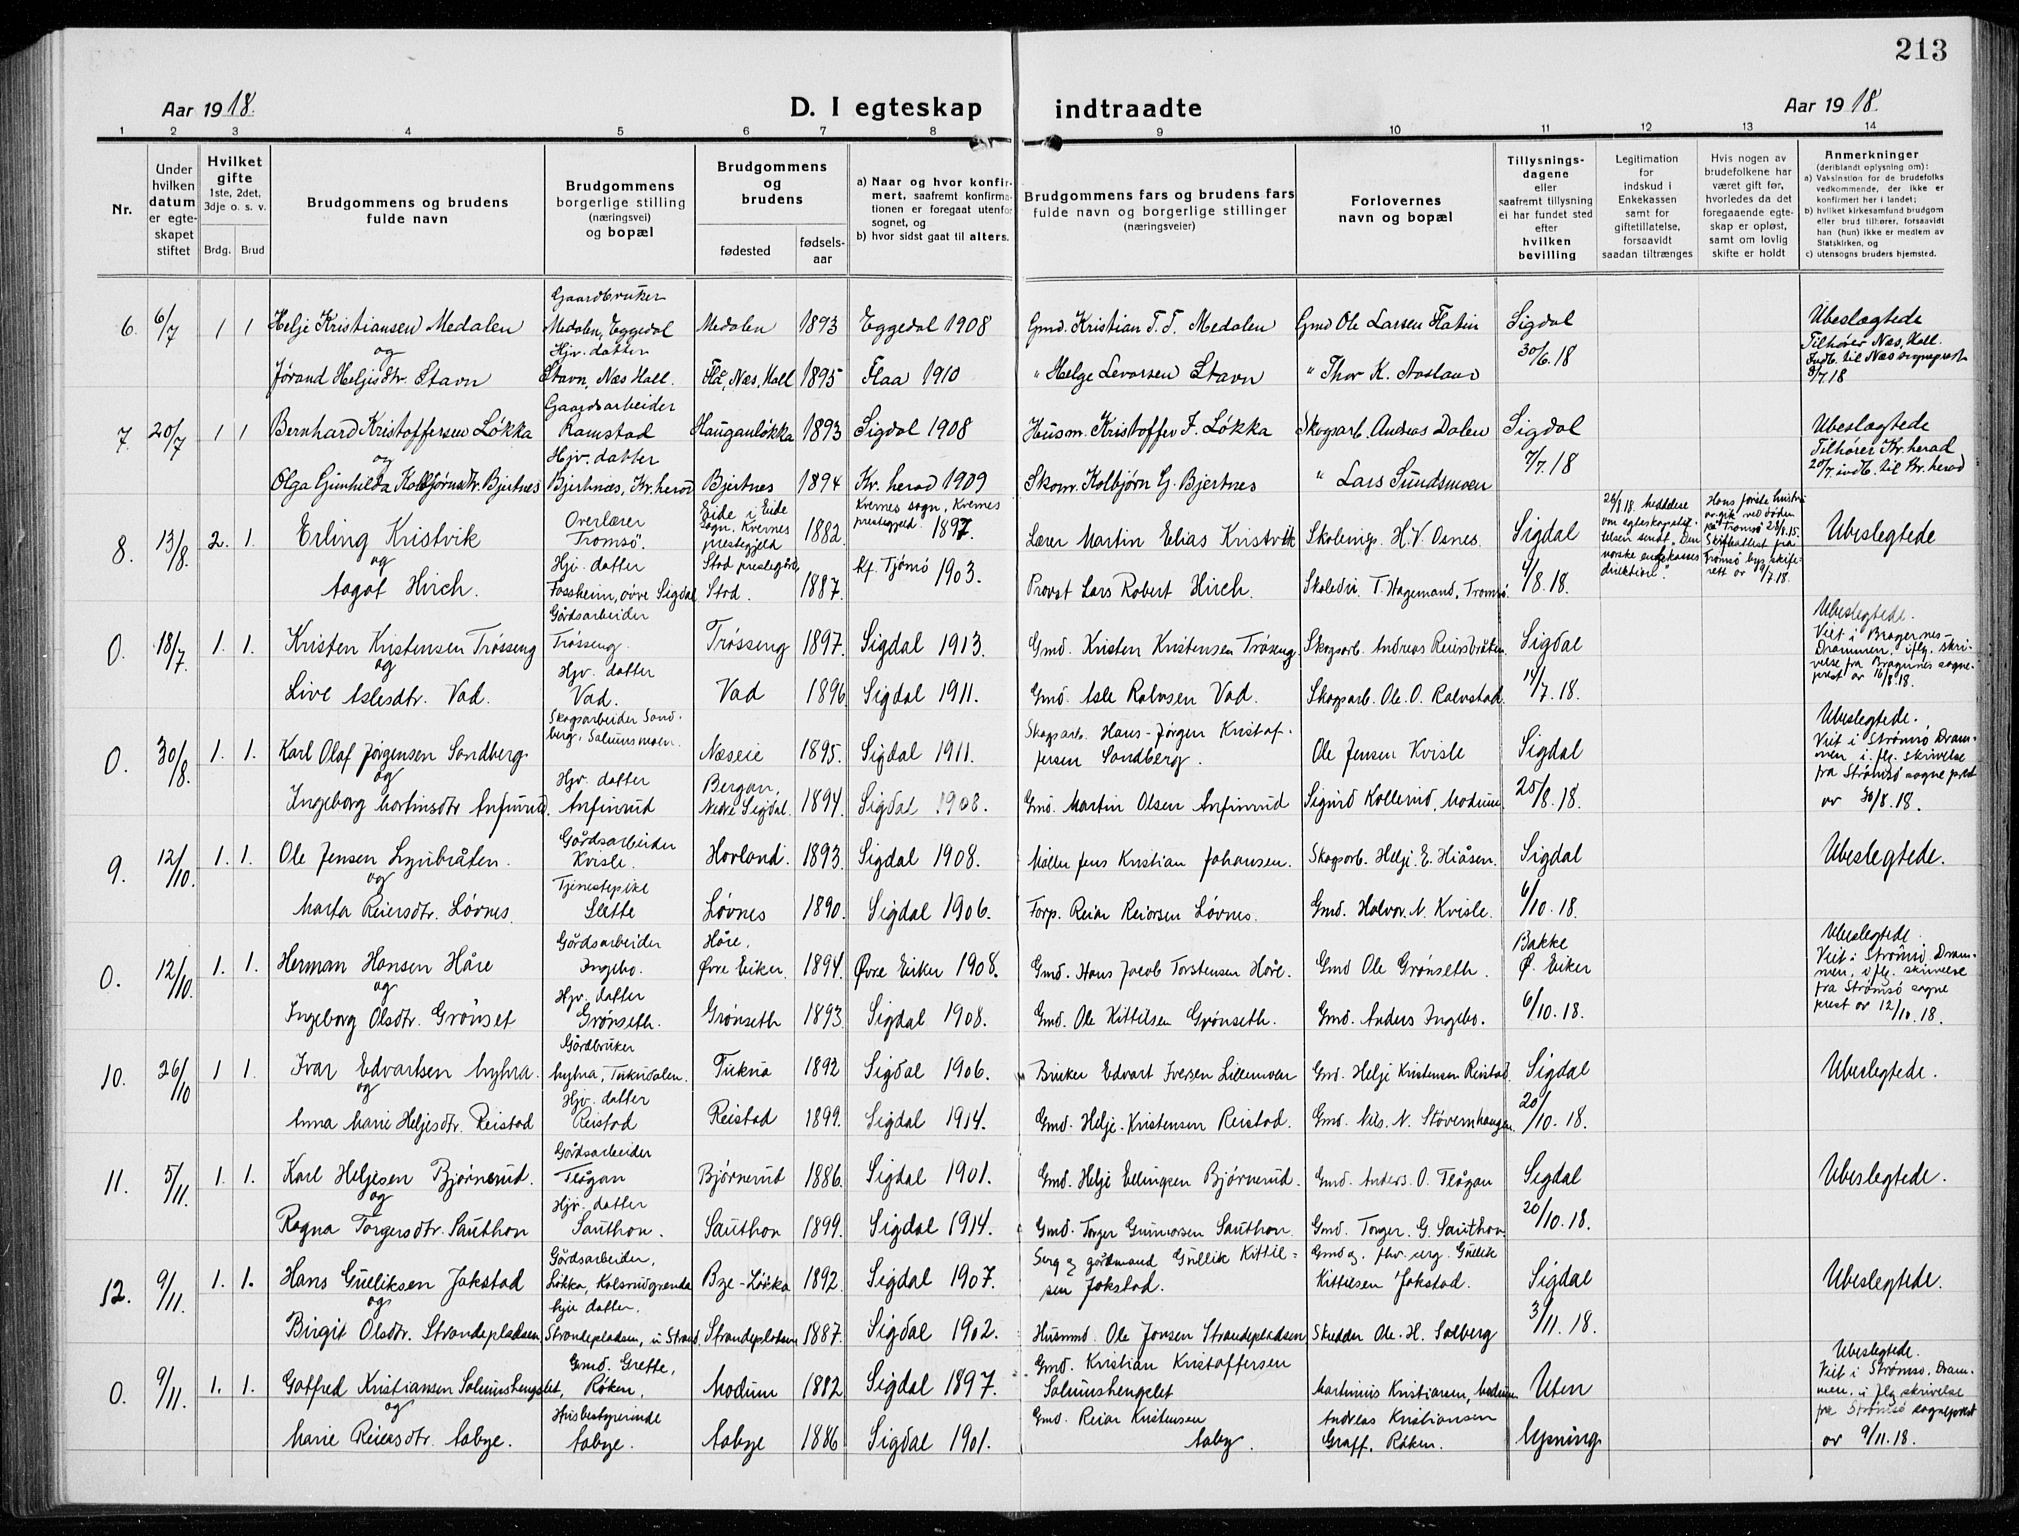 213
Aar 1918.
D. I egteskap indtraadte
Aar 1918.
1 2 3 4 5 6 7 8 9 10 11 12 13 14
Nr.
Under hvilken datum er egteskapet stiftet
Hvilket gifte
1ste, 2det, 3dje o. s. v.
Brdg. Brud
Brudgommens og brudens fulde navn
Brudgommens borgerlige stilling (næringsvei) og bopæl
Brudgommens og brudens
fødested
fødselsaar
a) Naar og hvor konfirmert, saafremt konfirmationen er foregaat utenfor sognet, og
b) hvor sidst gaat til alters.
Brudgommens fars og brudens fars fulde navn og borgerlige stillinger (næringsveier)
Forlovernes navn og bopæl
Tillysningsdagene eller saafremt tillysning ei har fundet sted efter hvilken bevilling
Legitimation for indskud i Enkekassen samt for giftetillatelse, forsaavidt saadan tiltrænges
Hvis nogen av brudefolkene har været gift før, hvorledes da det foregaaende egteskap er opløst, samt om lovlig skifte er holdt
Anmerkninger (deriblandt oplysning om):
a) Vaksinstion for de brudefolks vedkommende, der ikke er konfirmert her i landet;
b) hvilket kirkesamfund brudgom eller brud tilhører, forsaavidt han (hun) ikke er medlem av Statskirken, og
c) utensogns bruders hjemsted.
6. 6/7 1 1 Helje Kristiansen Medalen Gaardbruker Medalen, Eggedal Medalen 1893 Eggedal 1908 Gmd. Kristian T. T. Medalen Gmd Ole Larsen Flatin Sigdal 30/6.18 Ubeslægtede
og
Jørand Heljesdtr. Stavn Hjv. datter Stavn, Næs Hall. Flå, Næs, Hall 1895 Flaa 1910 " Helge Levorsen Stavn " Thor K. Aasland Tilhører Næs, Hall. Indb. til Næs sogneprest 8/7.18
7. 20/7 1 1 Bernhard Kristoffersen Løkka Gaardsarbeider Ramstad Hauganløkka 1893 Sigdal 1908 Husm. Kristoffer F. Løkka Skogsarb. Andreas Dalen Sigdal 7/7.18 Ubeslægtede
og
Olga Gunhilda Kolbjørnsdtr. Bjertnes Hjv. datter Bjertnæs, Kr. herad Bjertnes 1894 Kr. herad 1909 Skom. Kolbjørn G. Bjertnes " Lars Sundsmoen Tilhører Kr. herad 20/7 indb. til Kr. herad
8. 13/8. 2. 1. Erling Kristvik Overlærer Tromsø. Eide i Eide sogn, Kvernes prestegjeld 1882 Kvernes sogn, Kvernes prestegjeld 1897. Lærer Martin Elias Kristvik Skoleinsp. H. V. Osnes. Sigdal 4/8.18. 26/8 18. meddelelse om egteskapsstiftelsen sendt "Den norske enkekasses direktion". Hans første hustru avgik ved døden på Tromsø 28/8.15. Skifteattest fra Tromsø by skifterett av 9/7.18. Ubeslegtede
og
Aagot Hirch. Hjv. datter Fossheim, øvre Sigdal Stod prestegjeld, Stod. 1887. kf. Tjømø 1903. Provst Lars Robert Hirch. Skoledir T. Hagemand, Tromsø.
0. 18/7. 1. 1. Kristen Kristensen Trøsseng Gårdsarbeider Trøsseng. Trøsseng 1897. Sigdal 1913. Gmd. Kristen Kristensen Trøseng Skogsarb. Andreas Reiersbråten Sigdal 14/7.18. Ubeslegtede. Viet i Bragernes Drammen, iflg. skrivelse fra Bragernes sogneprest av 16/8.18.
og
Live Aslesdtr. Vad. Hjv. datter Vad. Vad 1896 Sigdal 1911. Gmd. Asle Ralvsen Vad. Skogsarb. Ole. O. Ralvstad.
0. 30/8. 1. 1. Karl Olaf Jørgensen Sandberg. Skogsarbeider Sandberg, Solumsmoen. Næseie 1895. Sigdal 1911. Skogsarb. Hans-Jørgen Kristoffersen Sandberg. Ole Jensen Kvisle Sigdal 25/8.18. Ubeslegtede. Viet i Strømsø Drammen i. flg. skrivelse fra Strømsø sogneprest av 30/8.18.
og
Ingeborg Martinsdtr Anfinrud. Hjv. datter Anfinrud Bergan, Nedre Sigdal. 1894. Sigdal 1908. Gmd. Martin Olsen Anfinrud Sigurd Kollerud, Modum
9. 12/10. 1. 1. Ole Jensen Lynbråten. Gårdsarbeider Kvisle. Hovland. 1893. Sigdal 1908. Møller Jens Kristian Johansen. Skogsarb. Helje. E. Hiåsen. Sigdal 6/10.18. Ubeslegtede.
og
Marta Reiersdtr. Løvnes. Tjenestepike Slette Løvnes 1890. Sigdal 1906. Forp. Reiar Reiersen Løvnes. Gmd. Halvor. N. Kvisle.
0. 12/10. 1. 1. Herman Hansen Håre Gårdsarbeider Ingebo. Håre, Øvre Eiker. 1894. Øvre Eiker 1908. Gmd. Hans Jacob Torstensen Håre. Gmd Ole Grønseth. Bakke Ø. Eiker 6/10.18. Ubeslegtede. Viet i Strømsø, Drammen, i flg. skrivelse fra Strømsø sogneprest av 12/10.18.
og
Ingeborg Olsdtr. Grønset Hjv. datter Grønseth. Grønseth 1893. Sigdal 1908. Gmd. Ole Kittilsen Grønseth. Gmd. Anders Ingebo.
10. 26/10 1 1. Ivar Edvartsen Myhra. Gårdbruker Myhra, Tukudalen. Tukua 1892 Sigdal 1906. Bruker Edvart Iversen Lillemoen Gmd. Helje Kristensen Reistad. Sigdal 20/10.18. Ubeslegtede.
og
Anna Marie Heljesdtr. Reistad Hjv. datter Reistad Reistad 1899. Sigdal 1914. Gmd. Helje. Kristensen Reistad. Gmd. Nils. N. Støvernhaugen
11. 5/11. 1. 1. Karl Heljesen Bjørnerud. Gårdsarbeider Flågan Bjørnerud 1886. Sigdal 1901. Gmd. Helje Ellingsen Bjørnerud. Gmd. Anders. O. Flågan Sigdal 20/10.18. Ubeslegtede.
og
Ragna Torgersdtr. Sauthon Hjv. datter Sauthon. Sauthon 1899. Sigdal 1914. Gmd. Torger Gunnarsen Sauthon Gmd. Torger. G. Sauthon
12. 9/11. 1. 1. Hans Gulliksen Jokstad Gårdsarbeider, Løkka, Kolsrudgrenda Bye-Løkka 1892. Sigdal 1907. Serg. og gårdmand Gullik Kittilsen Jokstad. Gmd og fhv. serg. Gullik Kittilsen Jokstad. Sigdal 3/11.18. Ubeslegtede.
og
Birgit Olsdtr. Strandepladsen hjv datter. Strandepladsen, u Strand. Strandepladsen 1887. Sigdal 1902. Husmd. Ole Jonsen Strandepladsen Skredder Ole. H. Solberg
0. 9/11. 1. 1. Gotfred Kristiansen Solumshengslet, Gmd. Grette, Røken, Modum 1882 Sigdal 1897. Gmd. Kristian Kristoffersen Solumshengslet Martinius Kristiansen, Modum Uten lysning Ubeslegtede. Viet i Strømsø, Drammen, i flg skrivelse fra Strømsø sogneprest av 9/11.18.
og
Marie Reiersdtr. Aabye. Husbestyrerinde Aabye. Aabye 1886 Sigdal 1901. Gmd. Reiar Kristensen Aaby. Andreas Kristiansen Graff, Røken.